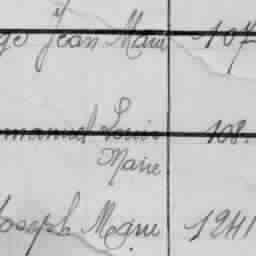 ge Jean Marie 107
manuel Louis 108.
Marie
Joseph Marie 1241